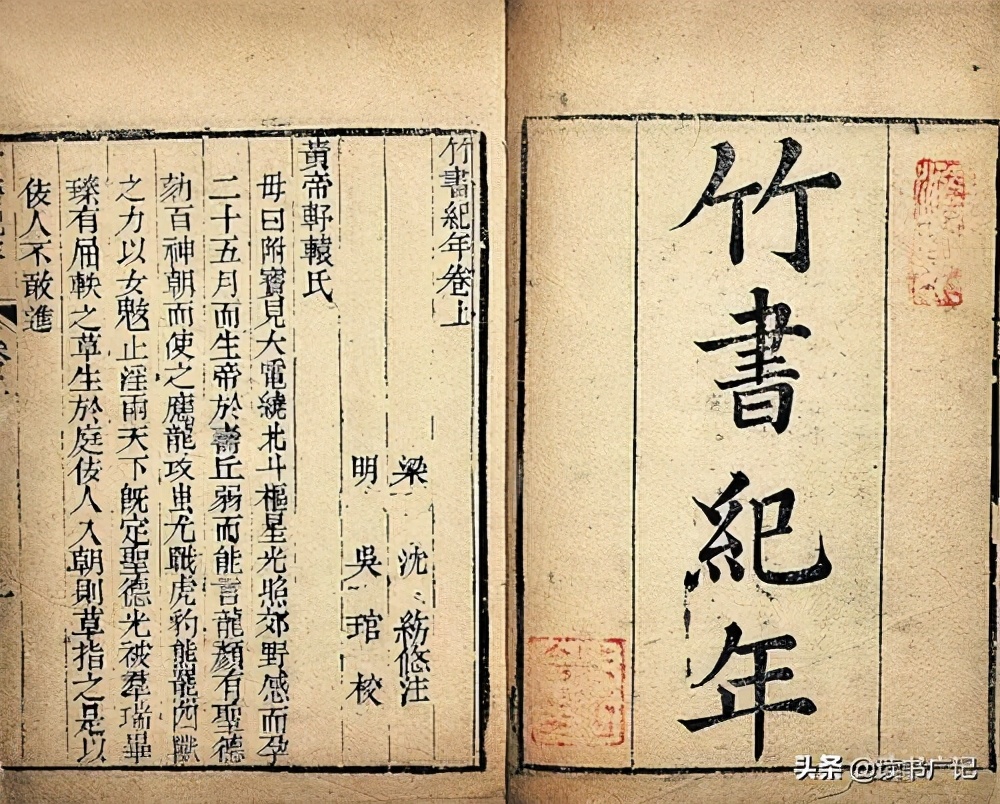 竹書紀年
竹書紀年卷上
梁 沈 注
明 吳 琯 校
黃帝軒轅氏
母曰附寶見大電繞北斗樞星光照郊野感而孕
二十五月而生帝於壽丘弱而能言龍顏有聖德
劾百神朝而使之應龍攻蚩尤戰虎豹熊羆四獸
之力以女魃止淫雨天下既定聖德光被羣瑞畢
臻有屈軼之草生於庭佞人入朝則草指之是以
佞人不敢進
头条 @读书广记